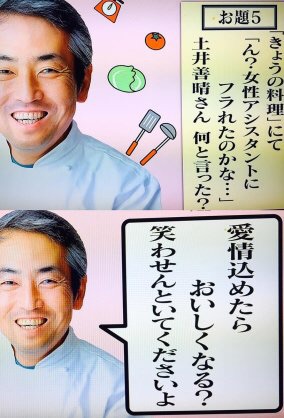 お題5
「きょうの料理」にて
「ん？女性アシスタントに
フラれたのかな…」
土井善晴さん 何と言った？
愛情込めたら
おいしくなる？
笑わせんといてくださいよ